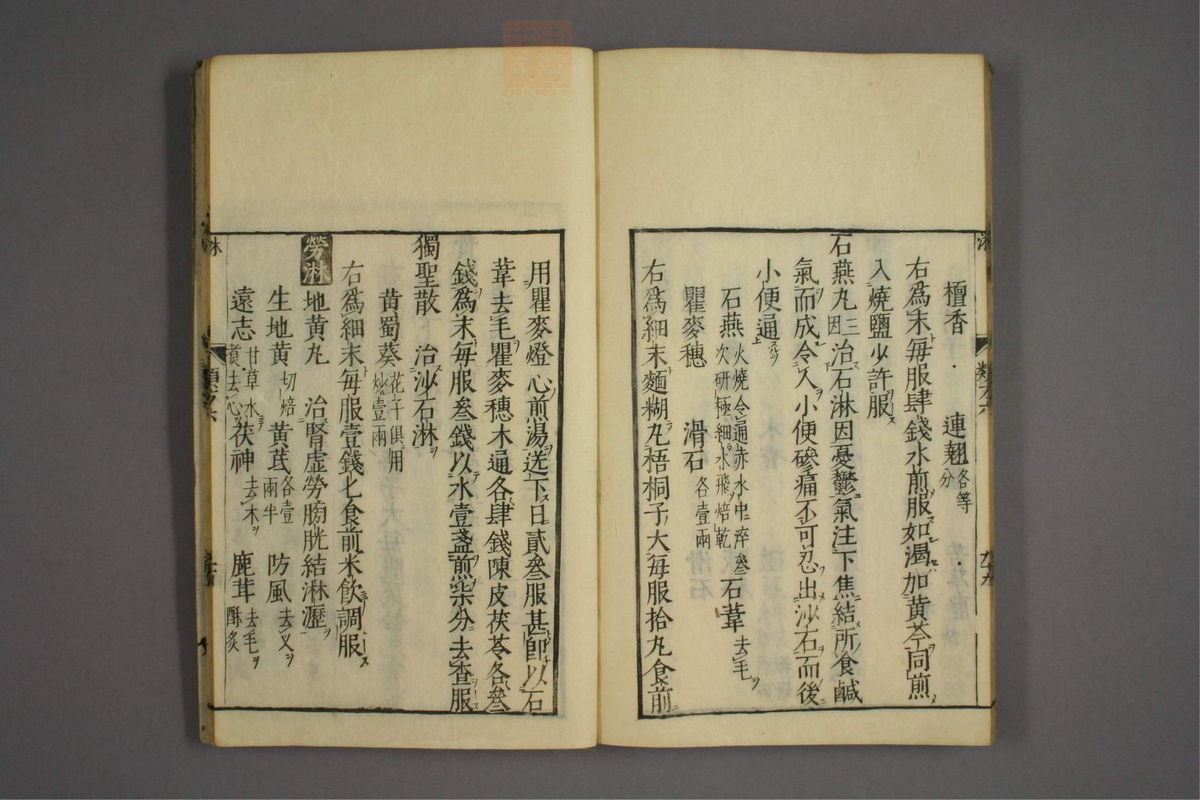 檀香 連翹各等分
右爲末毎服肆錢水煎服如渴加黄芩同煎
入燒鹽少許服
石燕丸三因治石淋因憂鬱氣注下焦結所食鹹
氣而成令人小便磣痛不可忍出沙石而後
小便通
石燕火燒令通赤水中淬叄次研極細水飛焙乾 石葦去毛
瞿麥穗 滑石各壹兩
右爲細末麵糊丸梧桐子大毎服拾丸食前
用瞿麥燈心煎湯送下日貳叄服甚卽以石
葦去毛瞿麥穗木通各肆錢陳皮茯苓各叄
錢爲末毎服叄錢以水壹盞煎柒分去査服
獨聖散 治沙石淋
黄蜀葵花子俱用炒壹兩
右爲細末毎服壹錢匕食前米飲調服
勞淋 地黄丸 治腎虚勞膀胱結淋瀝
生地黄切焙 黄芪各壹兩半 防風去叉
遠志甘草水煮去心 茯神去木 鹿茸去毛酥炙